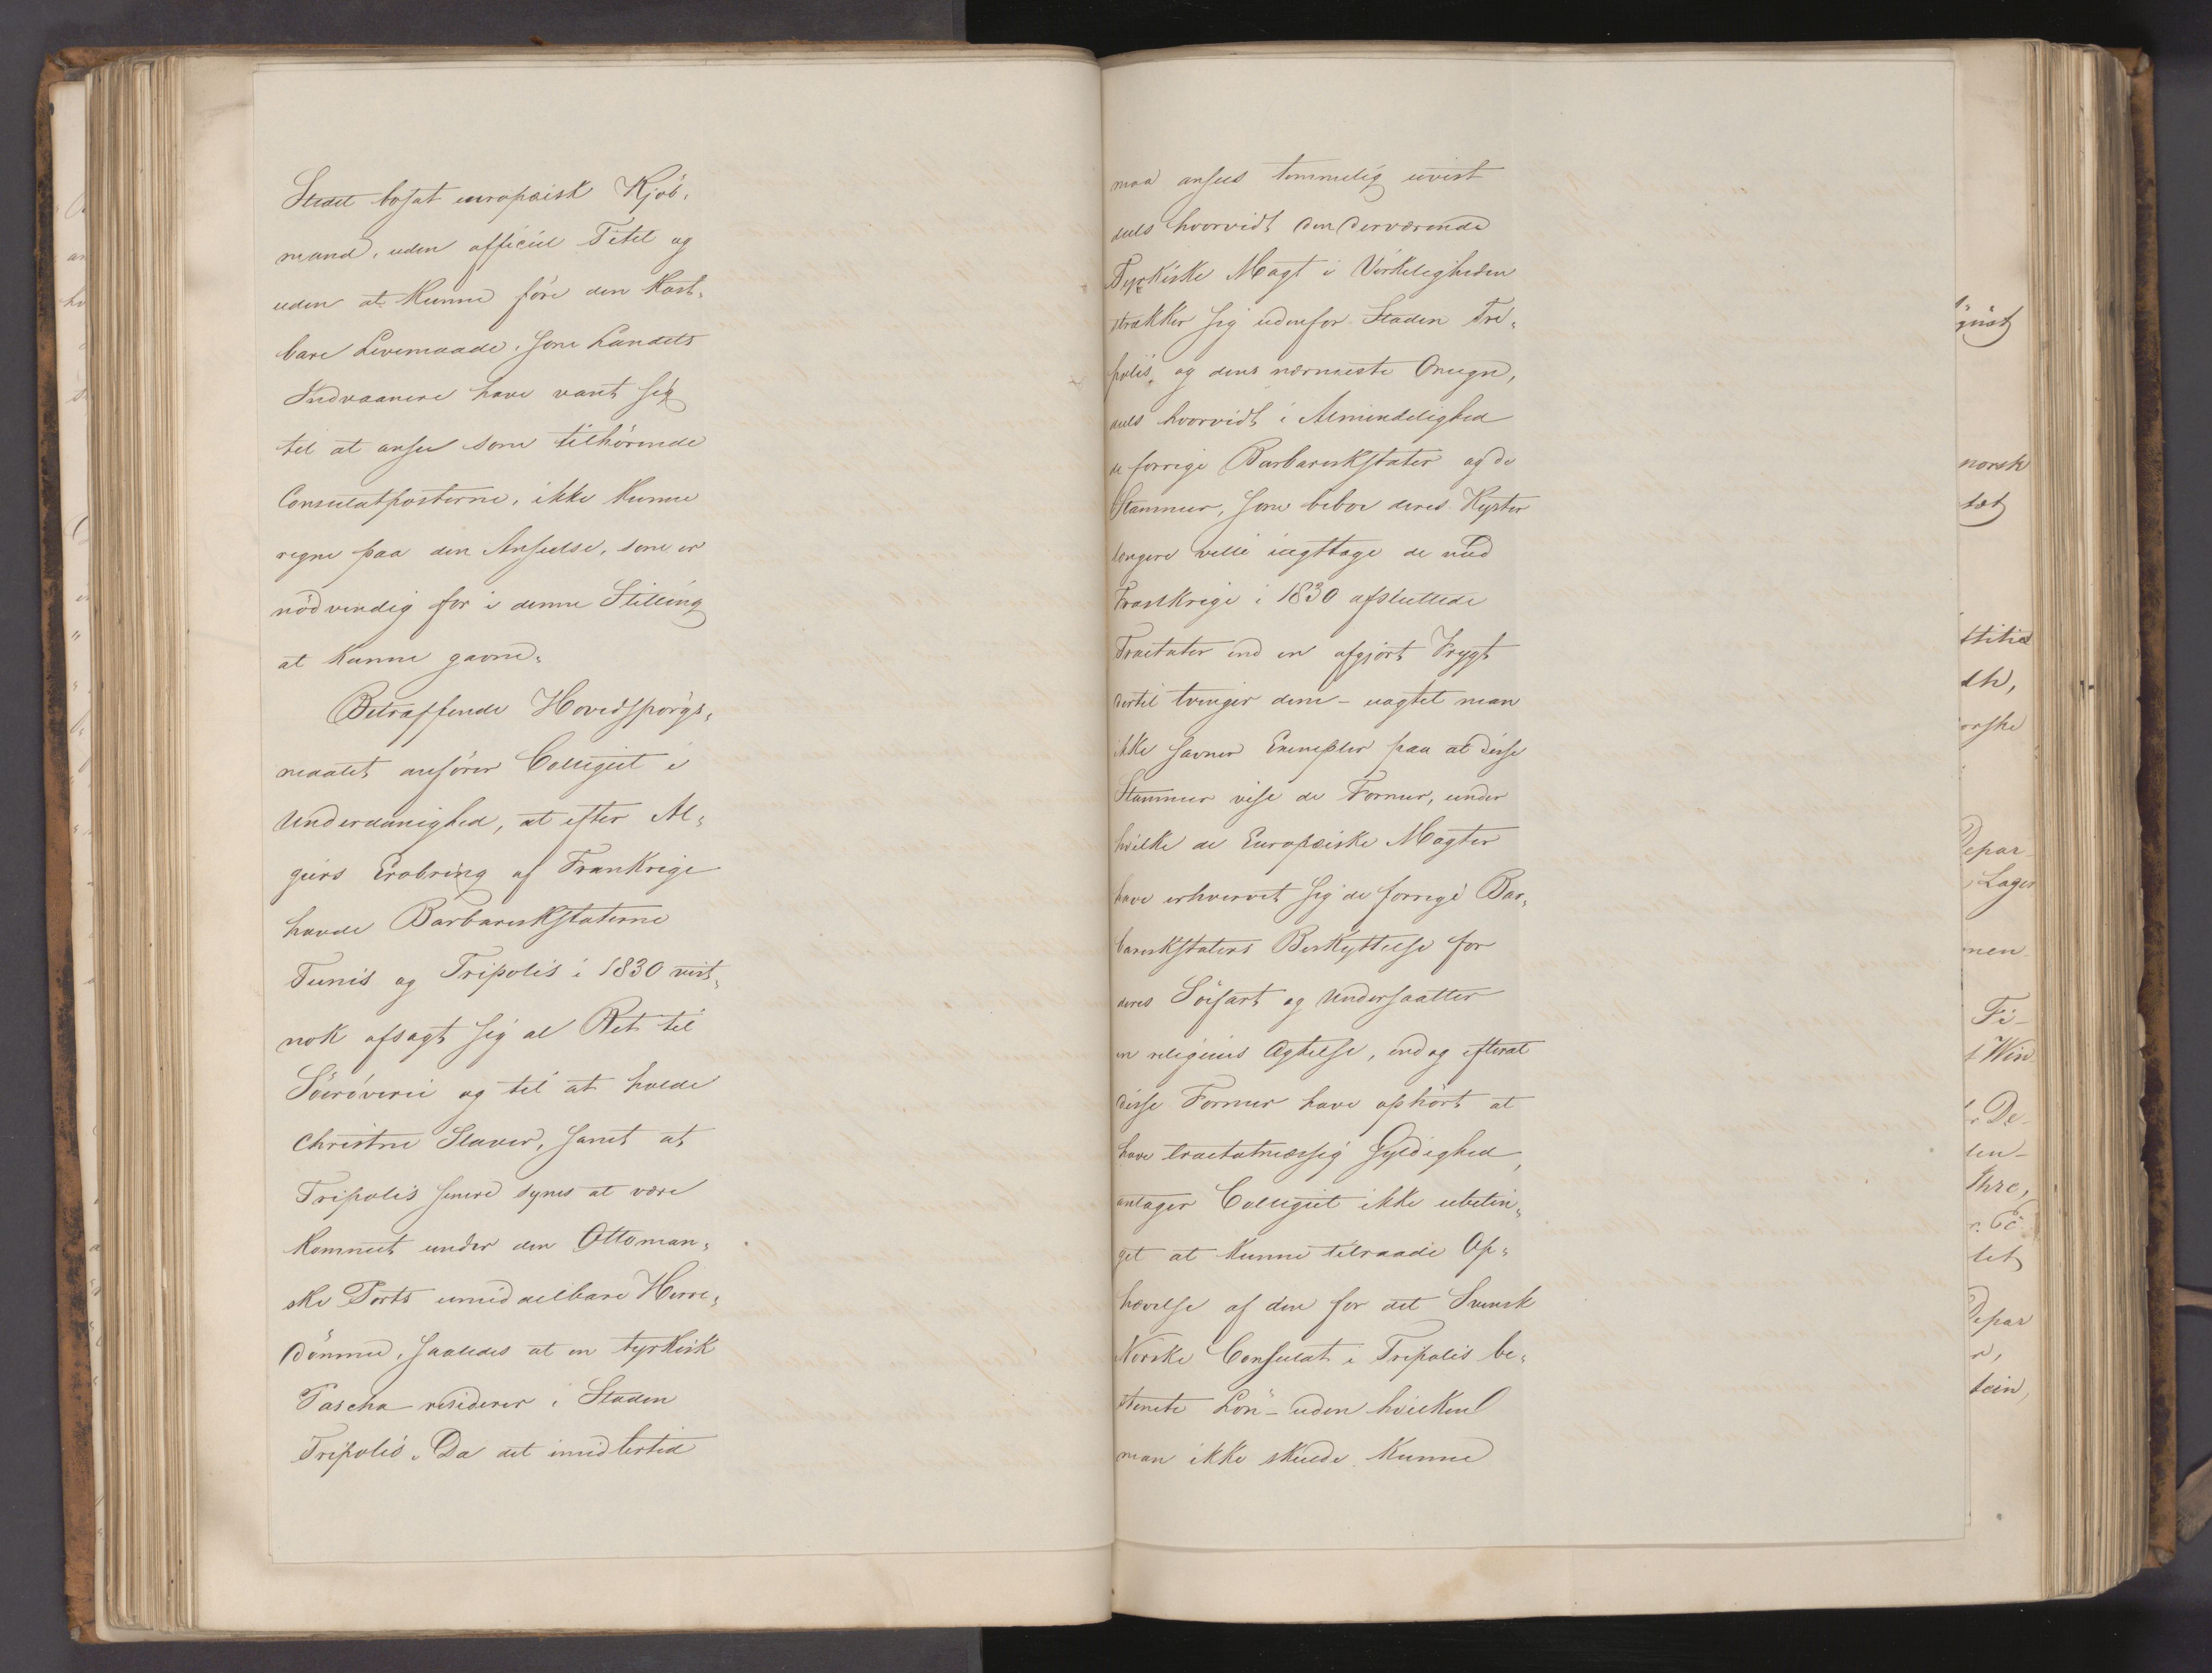 Stedet bosat europæisk Kjöb„
mand, uden officiel Titel og
uden at kunne före den kost„
bare Levemaade, som Landets
Indvaanere have vant sig
til at ansee som tilhörende
Consulatposterne, ikke kunne
regne paa den Anseelse, som er
nödvendig for i denne Stilling
at kunne gavne.
Betræffende Hovedspörgs„
maalet anförer Collegiet i
Underdanighed, at efter Al„
giers Erobring af Frankrige
havde Barbareskstaterne
Tunis og Tripolis i 1830 vist„
nok afsagt sig al Ret til
Söeröverie og til at holde
Christne Slaver, samt at
Tripolis senere synes at være
kommet under den Ottoman„
ske Ports umiddelbare Herre„
dömme, saaledes at en tyrkisk
Pascha residerer i Staden
Tripolis. Da det imidlertid
maa ansees temmelig uvist
deels hvorvidt den derværende
Tyrkiske Magt i Virkeligheden
strækker sig udenfor Staden Tri„
polis, og dens nærmeste Omegn,
deels hvorvidt i Almindelighed
de forrige Barbareskstater og de
Stammer, som beboe deres Kyster
længere ville iagttage de med
Frankrige i 1830 afsluttede
Tractater end en afgjort Frygt
dertil tvinger dem – uagtet man
ikke savner Exempler paa at disse
Stammer vise de Former, under
hvilke de Europæiske Magter
have erhvervet sig de forrige Bar„
bareskstaters Beskyttelse for
deres Söefart og Undersaatter
en religieus Agtelse, endog efterat
disse Former have ophört at
have tractatmæssig Gyldighed,
antager Collegiet ikke ubetin„
get at kunne tilraade Op„
hævelse af den for det Svensk
Norske Consulat i Tripolis be„
stemte Lön – uden hvilken
man ikke skulde kunne
norsk
tet
dh,
orske
Depar
Lager
men
Fi-
t Win
r De-
len-
Thre,
tet
Depar
tein,